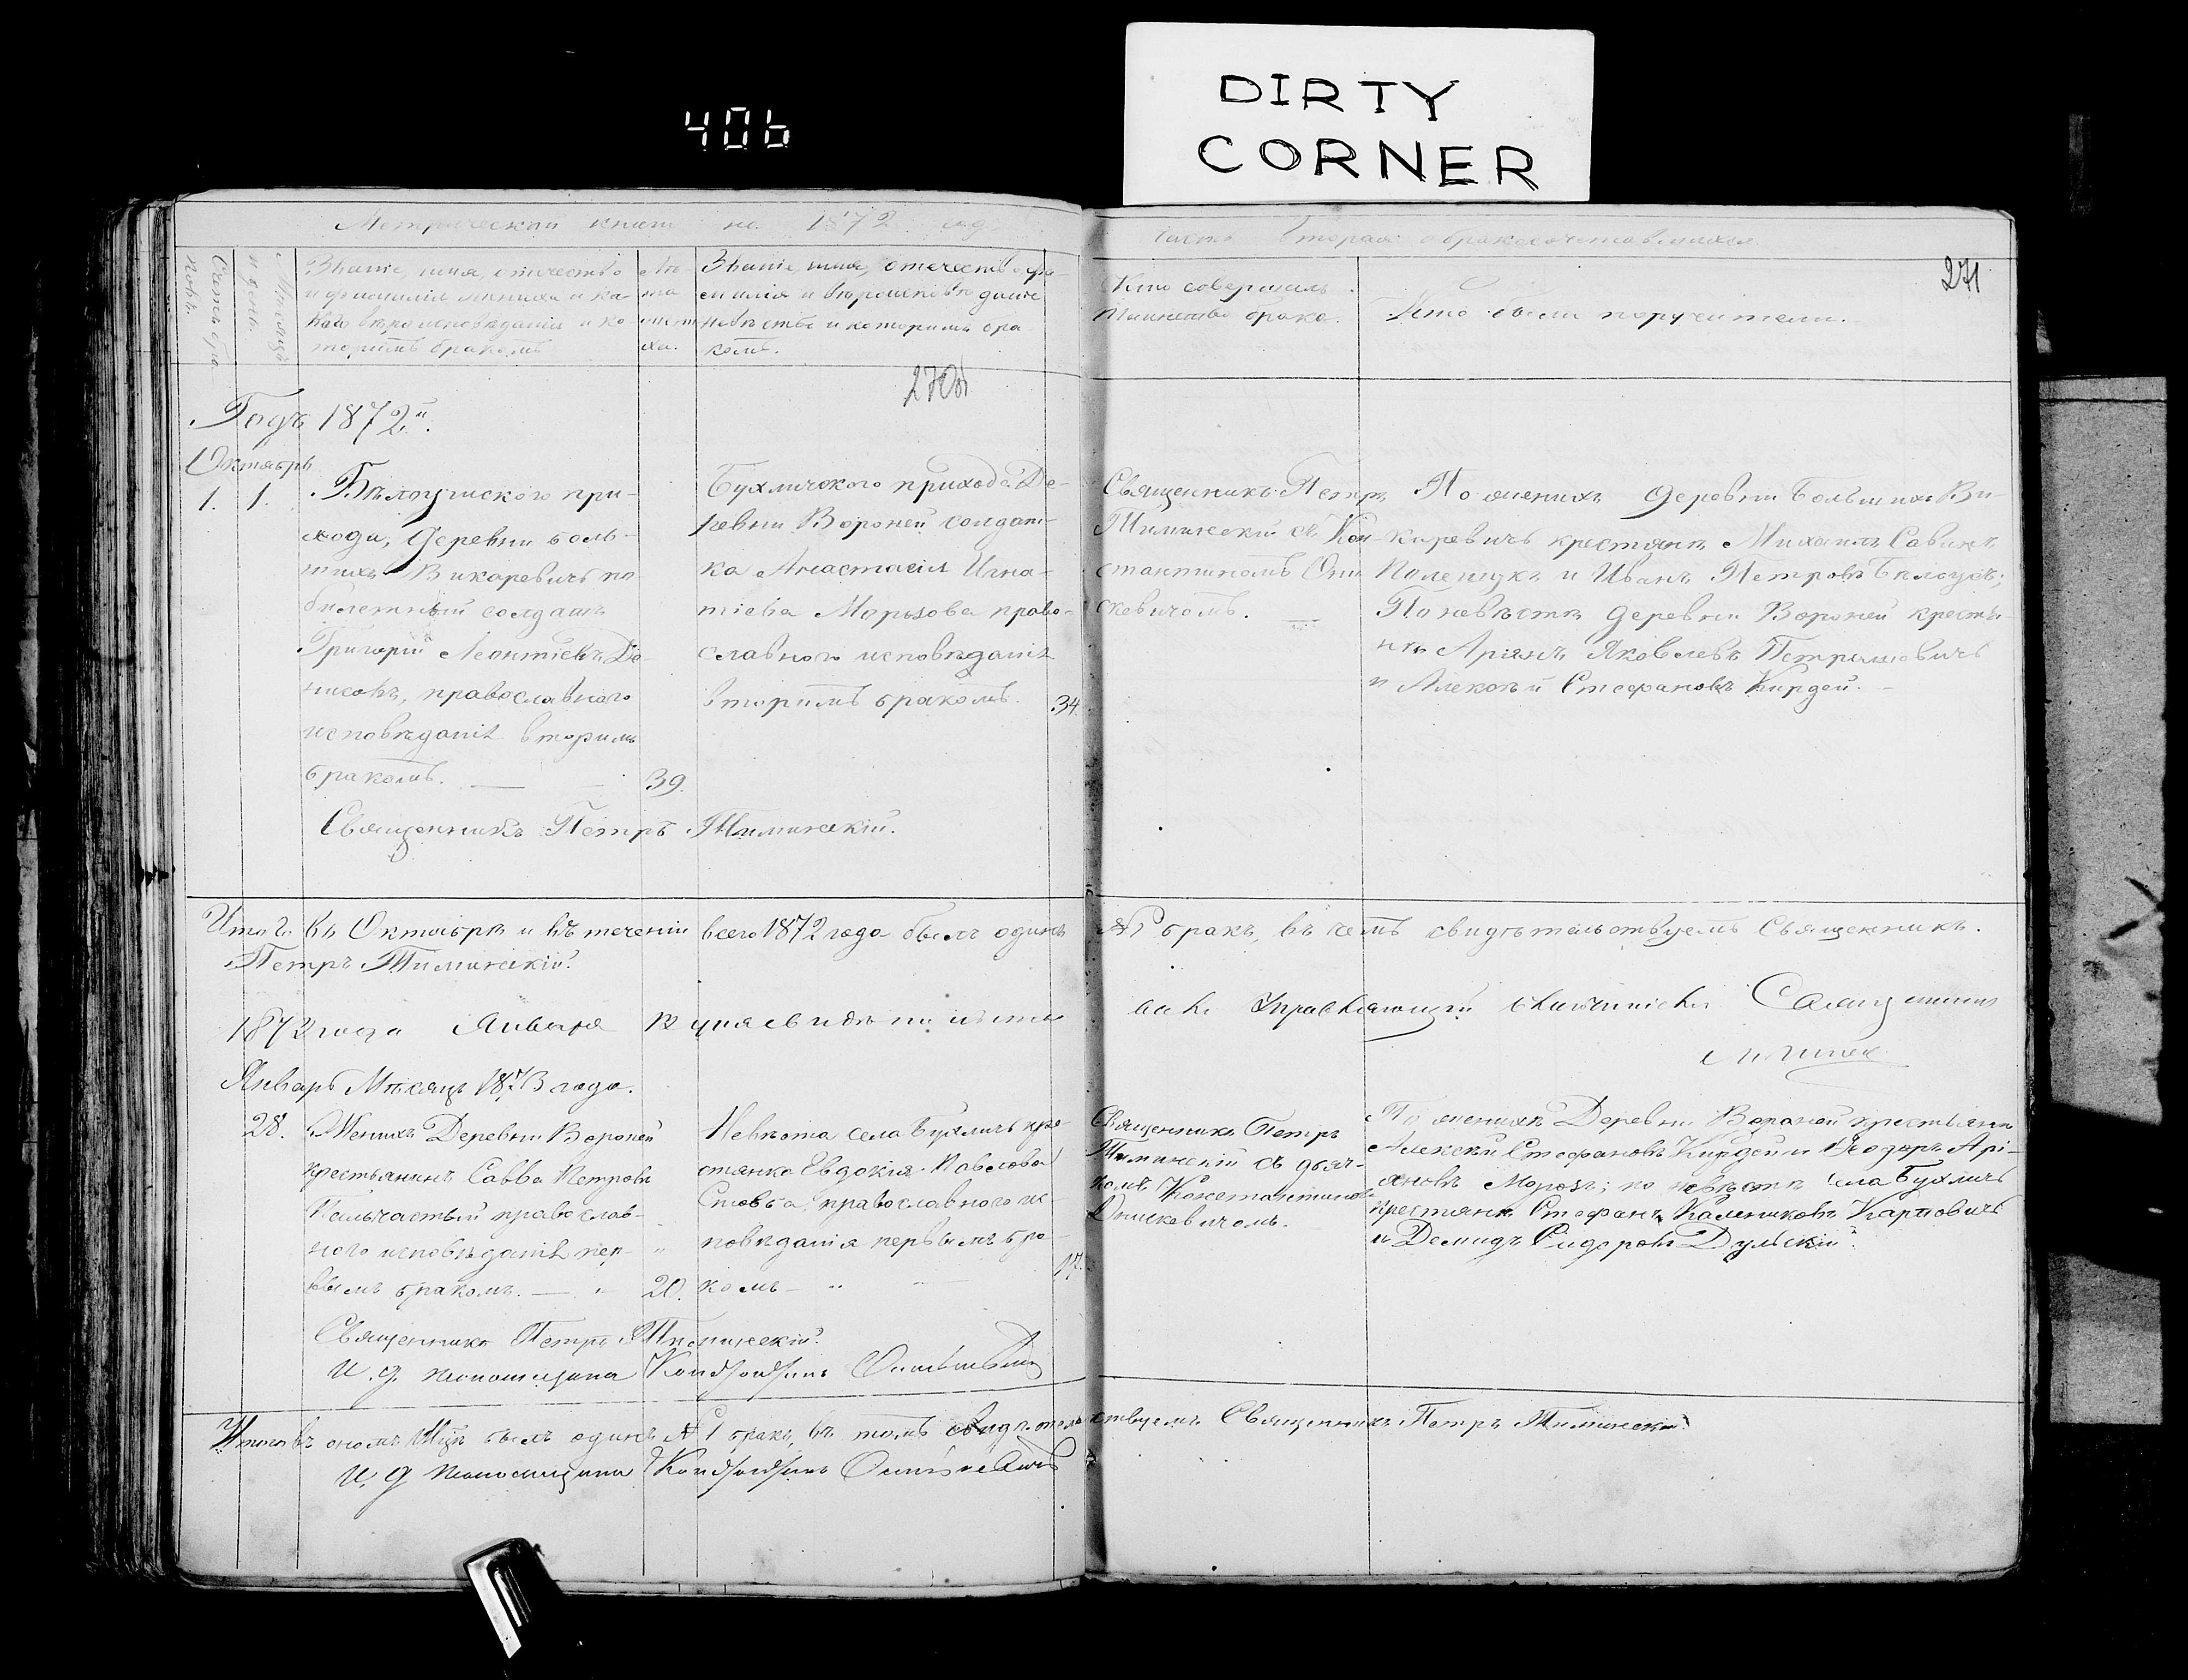 DIRTY
CORNER
406
Метрической книги на 1872 годъ
Часть вторая о бракосочетавшихся.
271
Счетъ бра
ковъ.
Мѣсяцъ
и день.
Званіе, имя, отчество
и фамилія жениха и ка-
кого вѣроисповѣданія и ко
торимъ бракомъ
Лѣ
та
жени
ха.
Званіе, имя, отчество фа-
милія и вѣроисповѣданіе
невѣсты и которимъ бра
комъ.
Кто совершилъ
Таинство брака.
Кто были поручители.
270об
Годъ 1872й.
Октябрь
1. 1.
Бѣлоушского при-
хода, Деревни боль-
шихъ Викаревичъ по
билетный солдатъ
Григорій Леонтіевъ Де-
нисовъ, православного
исповѣданія вторимъ
бракомъ.
39.
Бухличского прихода Де-
ревни Вороней солдат-
ка Анастасія Игна-
тіева Морозова право-
славного исповѣданія
вторимъ бракомъ.
34.
Священникъ Петръ
Тиминскій съ Кон-
стантиномъ Они
скевичомъ.
По женихѣ деревни Большихъ Ви-
каревичъ крестяне Михаилъ Савинъ
Полещукъ и Иванъ Петровъ Бѣлоусъ;
По невѣстѣ деревни Вороней кресть-
яне Аріянъ Яковлевъ Петрашовичъ
и Алексѣй Стефановъ Кирдей.
Священникъ Петръ Тиминскій.
Итого въ Октябрѣ и въ теченіи всего 1872 года былъ одинъ № 1 бракъ, въ чемъ свидѣтельствуемъ Священникъ.
Петръ Тиминскій.
1872 года Января 12 дня
Священникъ
Январь Мѣсяцъ 1873 года.
28.
Женихъ Деревни Вороней
крестьянинъ Савва Петровъ
православ-
ного исповѣданія пер-
вымъ бракомъ.
20.
Невѣста села Бухличъ кре-
стянка Евдокія Павлова
православного ис-
повѣданія первымъ бра-
комъ
17.
Священникъ Петръ
Тиминскій съ дьяч-
комъ Константиномъ
Онискевичомъ.
По женихѣ Деревни Вороней крестьяне
Алексѣй Стефановъ Кирдей и Ѳеодоръ Арі-
яновъ Морозъ; по невѣстѣ села Бухличъ
крестяне Стефанъ Калениковъ Карповичъ
и Демидъ Сидоровъ Дульскій.
Священникъ Петръ Тиминскій.
И. д. псаломщика Константинъ Онискевичъ
Итого въ ономъ Мцѣ былъ одинъ № 1 бракъ, въ томъ свидѣтельствуемъ Священникъ Петръ Тиминскій
И. д. псаломщика Константинъ Онискевичъ